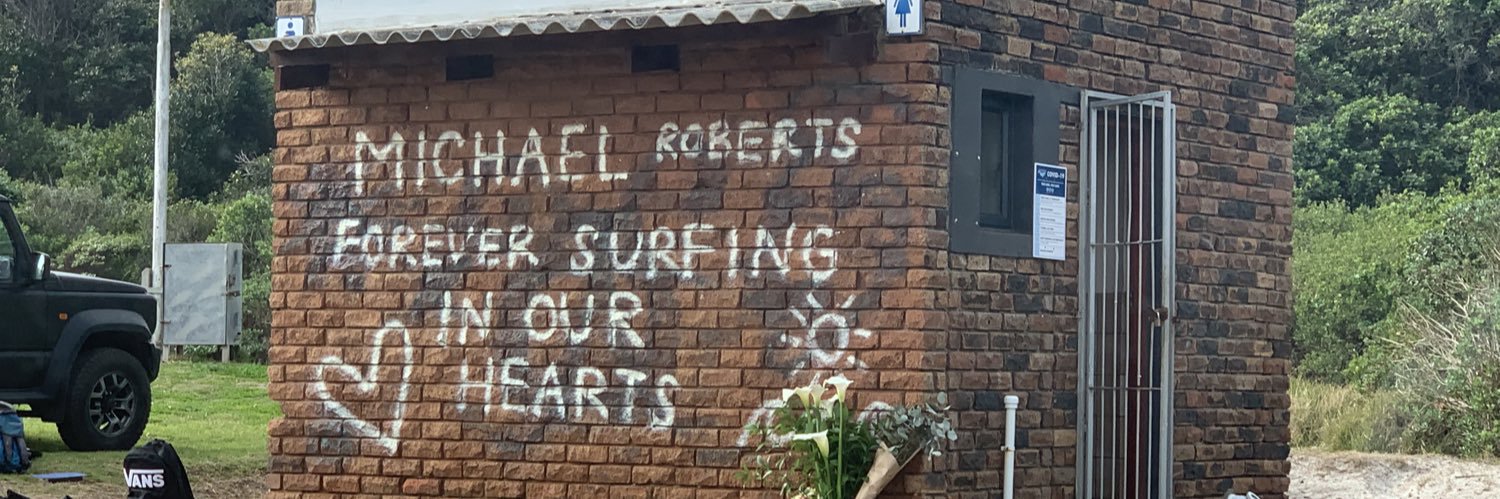 MICHAEL ROBERTS
FOREVER SURFING
IN OUR
HEARTS
COVID-19
VANS